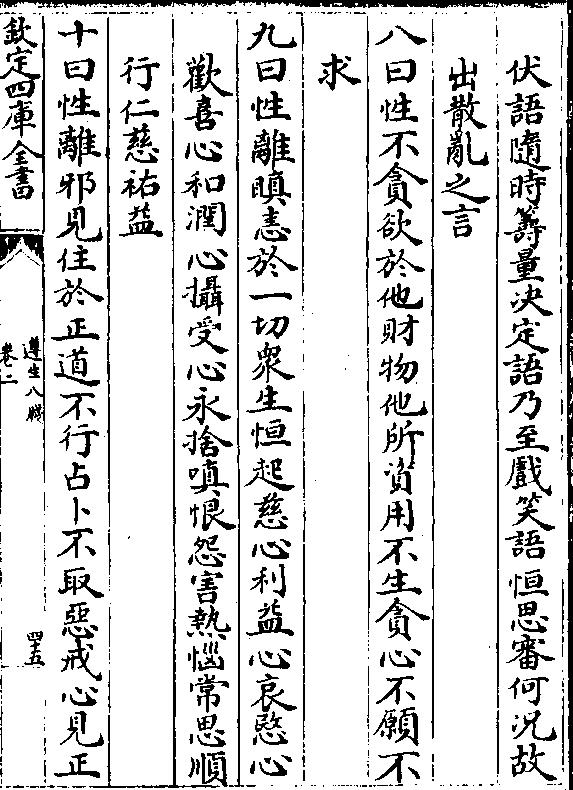 伏語隨時籌量決定語乃至戲笑語恒思審何况故
出散亂之言
八曰性不貪欲於他財物他所資用不生貪心不願不
求
九曰性離瞋恚於一切衆生恒起慈心利益心哀愍心
歡喜心和潤心攝受心永捨嗔恨怨害熱惱常思順
行仁慈祐益
十曰性離邪見住於正道不行占卜不取惡戒心見正
欽定四庫全書
遵生八牋
卷二
四十五